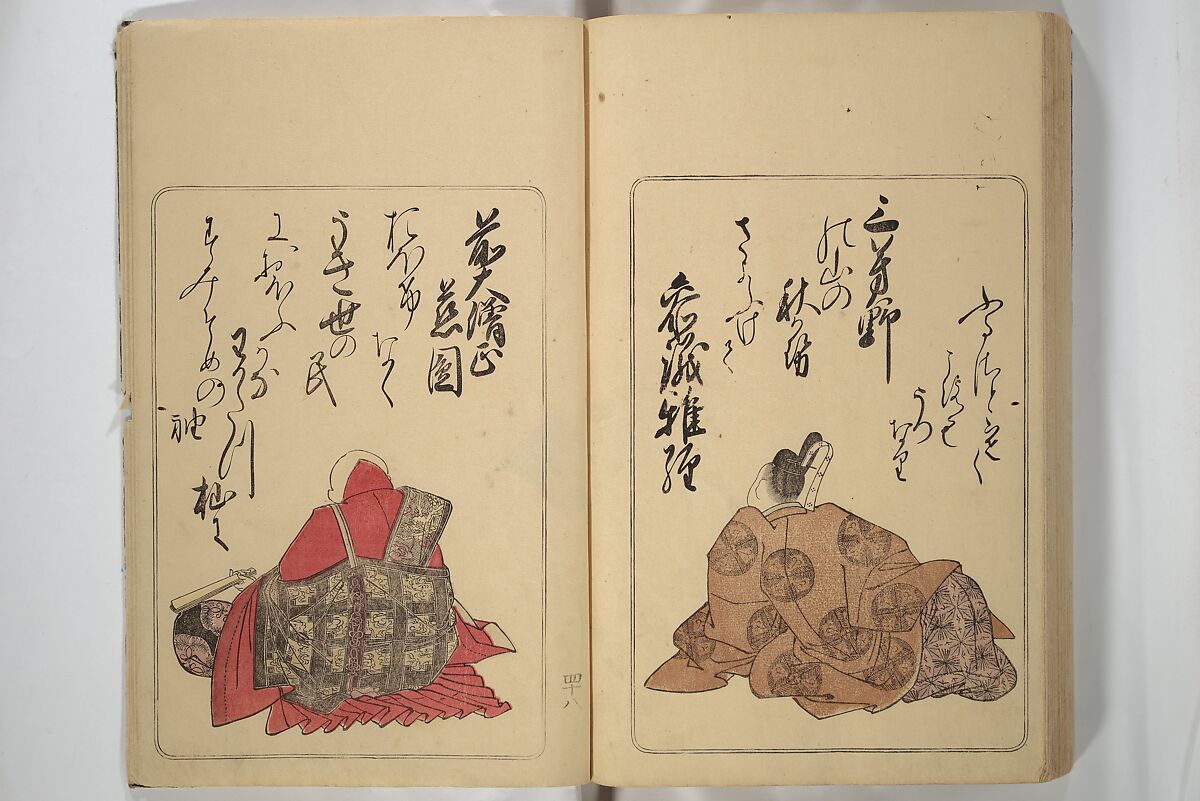 三芳野
の山の
秋風
さよふけて
ふるさとさむく
ころも
うつ
なり
参議雅経
前大僧正
慈圓
おほけ
なく
うき世の
民
におほふ
かな
わかたつ
杣に
すみそめの
袖
四十八